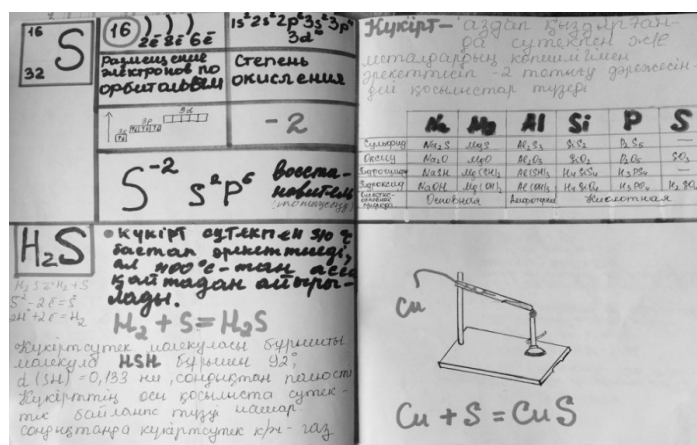 16
S
32
16
2ē 8ē 6ē
1s² 2s² 2p⁶ 3s² 3p⁴
3d⁰
Размещение
электронов по
орбиталям
Степень
окисления
3d
3p
3s
-2
S⁻² s²p⁶
Восста-
новитель
H₂S
• Күкірт сутекпен 310 °C
бастап әрекеттеседі,
ал 400°C-тан аса
қайтадан айыры-
лады.
H₂ + S = H₂S
H₂S = H₂ + S
S²⁻ - 2ē = S⁰
2H⁺ + 2ē = H₂
Күкіртсутек молекуласы бұрышты
молекула HSH бұрышы 92°,
d (SH) = 0,133 нм, сондықтан
Күкірттің осы қосылыста сутек-
тік байланыс түзуі нашар
сондықтан күкіртсутек к/ж - газ
Күкірт – аздап қыздырған-
да сутекпен және
металдардың көпшілігімен
әрекеттесіп -2 тотығу дәрежесін-
дей қосылыстар түзеді
Na Mg Al Si P S
Сульфид Na₂S MgS Al₂S₃ SiS₂ P₂S₅ —
Оксид Na₂O MgO Al₂O₃ SiO₂ P₂O₅ SO₃
Гидросульфид NaSH Mg(SH)₂ Al(SH)₃ H₄SiS₄ H₃PS₄ —
Гидроксид NaOH Mg(OH)₂ Al(OH)₃ H₄SiO₄ H₃PO₄ H₂SO₄
Основная Амфотерная Кислотная
Cu
Cu + S = CuS